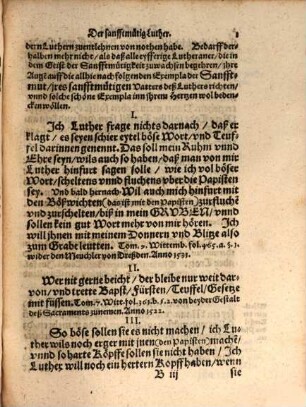 Der sanfftmütig Luther. 1
dern Luthern zuentlehnen von nothen habe. Bedarff der-
halben mehr nicht / als daß alle eyfferige Lutheraner / die
in dem Geist der Sanfftmütigkeit zuwachsen begehren / jhre
Augẽ auff die allhie nach folgenden Exempla der Sanfft-
mut / jres sanfftmütigen Vatters deß Luthers richten /
vnnd solche schöne Exempla inn jhrem Hertzen wol beden-
cken wöllen.
I.
Ich Luther frage nichts darnach / daß er
klagt / es seyen schier eytel böse Wort / vnd Teuf-
fel darinnen genennt. Das soll mein Ruhm vnnd
Ehre seyn / wils auch so haben / daß man von mir
Luther hinfurt sagen solle / wie ich vol böser
Wort / scheltens vnnd fluchens vber die Papisten
sey. Vnd bald hernach Wil auch mich hinfurt mit
den Bößwichten (das ist mit den Papisten) zuflucht
vnd zurschelten / biß in mein GRVBEN / vnnd
sollen kein gut Wort mehr von mir hören. Ich
will jhnen mit meinem Donnern vnd Blitze also
zum Grabe leutten. Tom. 7. Wittemb. fol. 465. a. 5. 1.
wider den Meuchler von Dreßden. Anno 1531.
II.
Wer nit gerne beicht / der bleibe nur weit dar-
von / vnd trette Bapst / Fürsten / Teuffel / Gesetze
mit füssen. Tom. 7. Wit. fol. 363. b. 5. 2. von beyder Gestalt
deß Sacraments zunemen. Anno 1522.
III.
So böse sollen sie es nicht machen / ich Lu-
ther wils noch erger mit juen (den Papisten) mache͂ /
vnnd so harte Köpffe sollen sie nicht haben / Ich
Luther will noch ein hertern Kopff haben / wenn
B iij sie